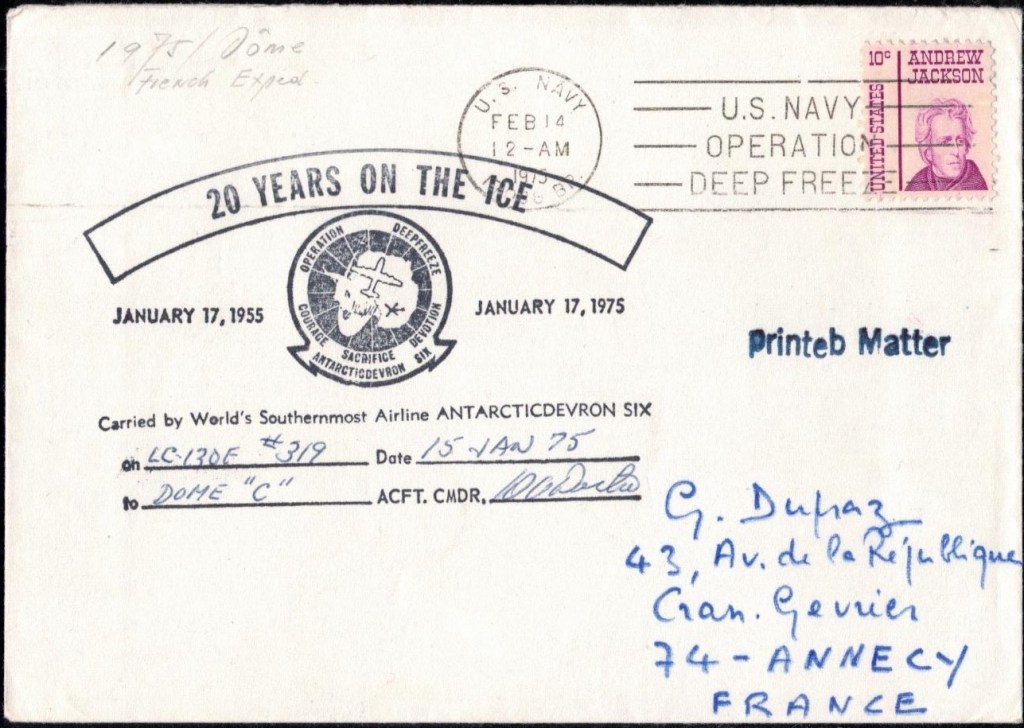 1975/Dôme
French Exped.
U. S. NAVY
FEB 14
12-AM
1975
U.S. NAVY
OPERATION
DEEP FREEZE
10c
ANDREW
JACKSON
UNITED STATES
20 YEARS ON THE ICE
OPERATION DEEPFREEZE
COURAGE SACRIFICE DEVOTION
ANTARCTICDEVRON SIX
JANUARY 17, 1955
JANUARY 17, 1975
Printeb Matter
Carried by World's Southernmost Airline ANTARCTICDEVRON SIX
on LC-130F #319 Date 15 JAN 75
to DOME "C" ACFT. CMDR,
G. Dupraz
43, Av. de la République
Cran. Gevrier
74 - ANNECY
FRANCE